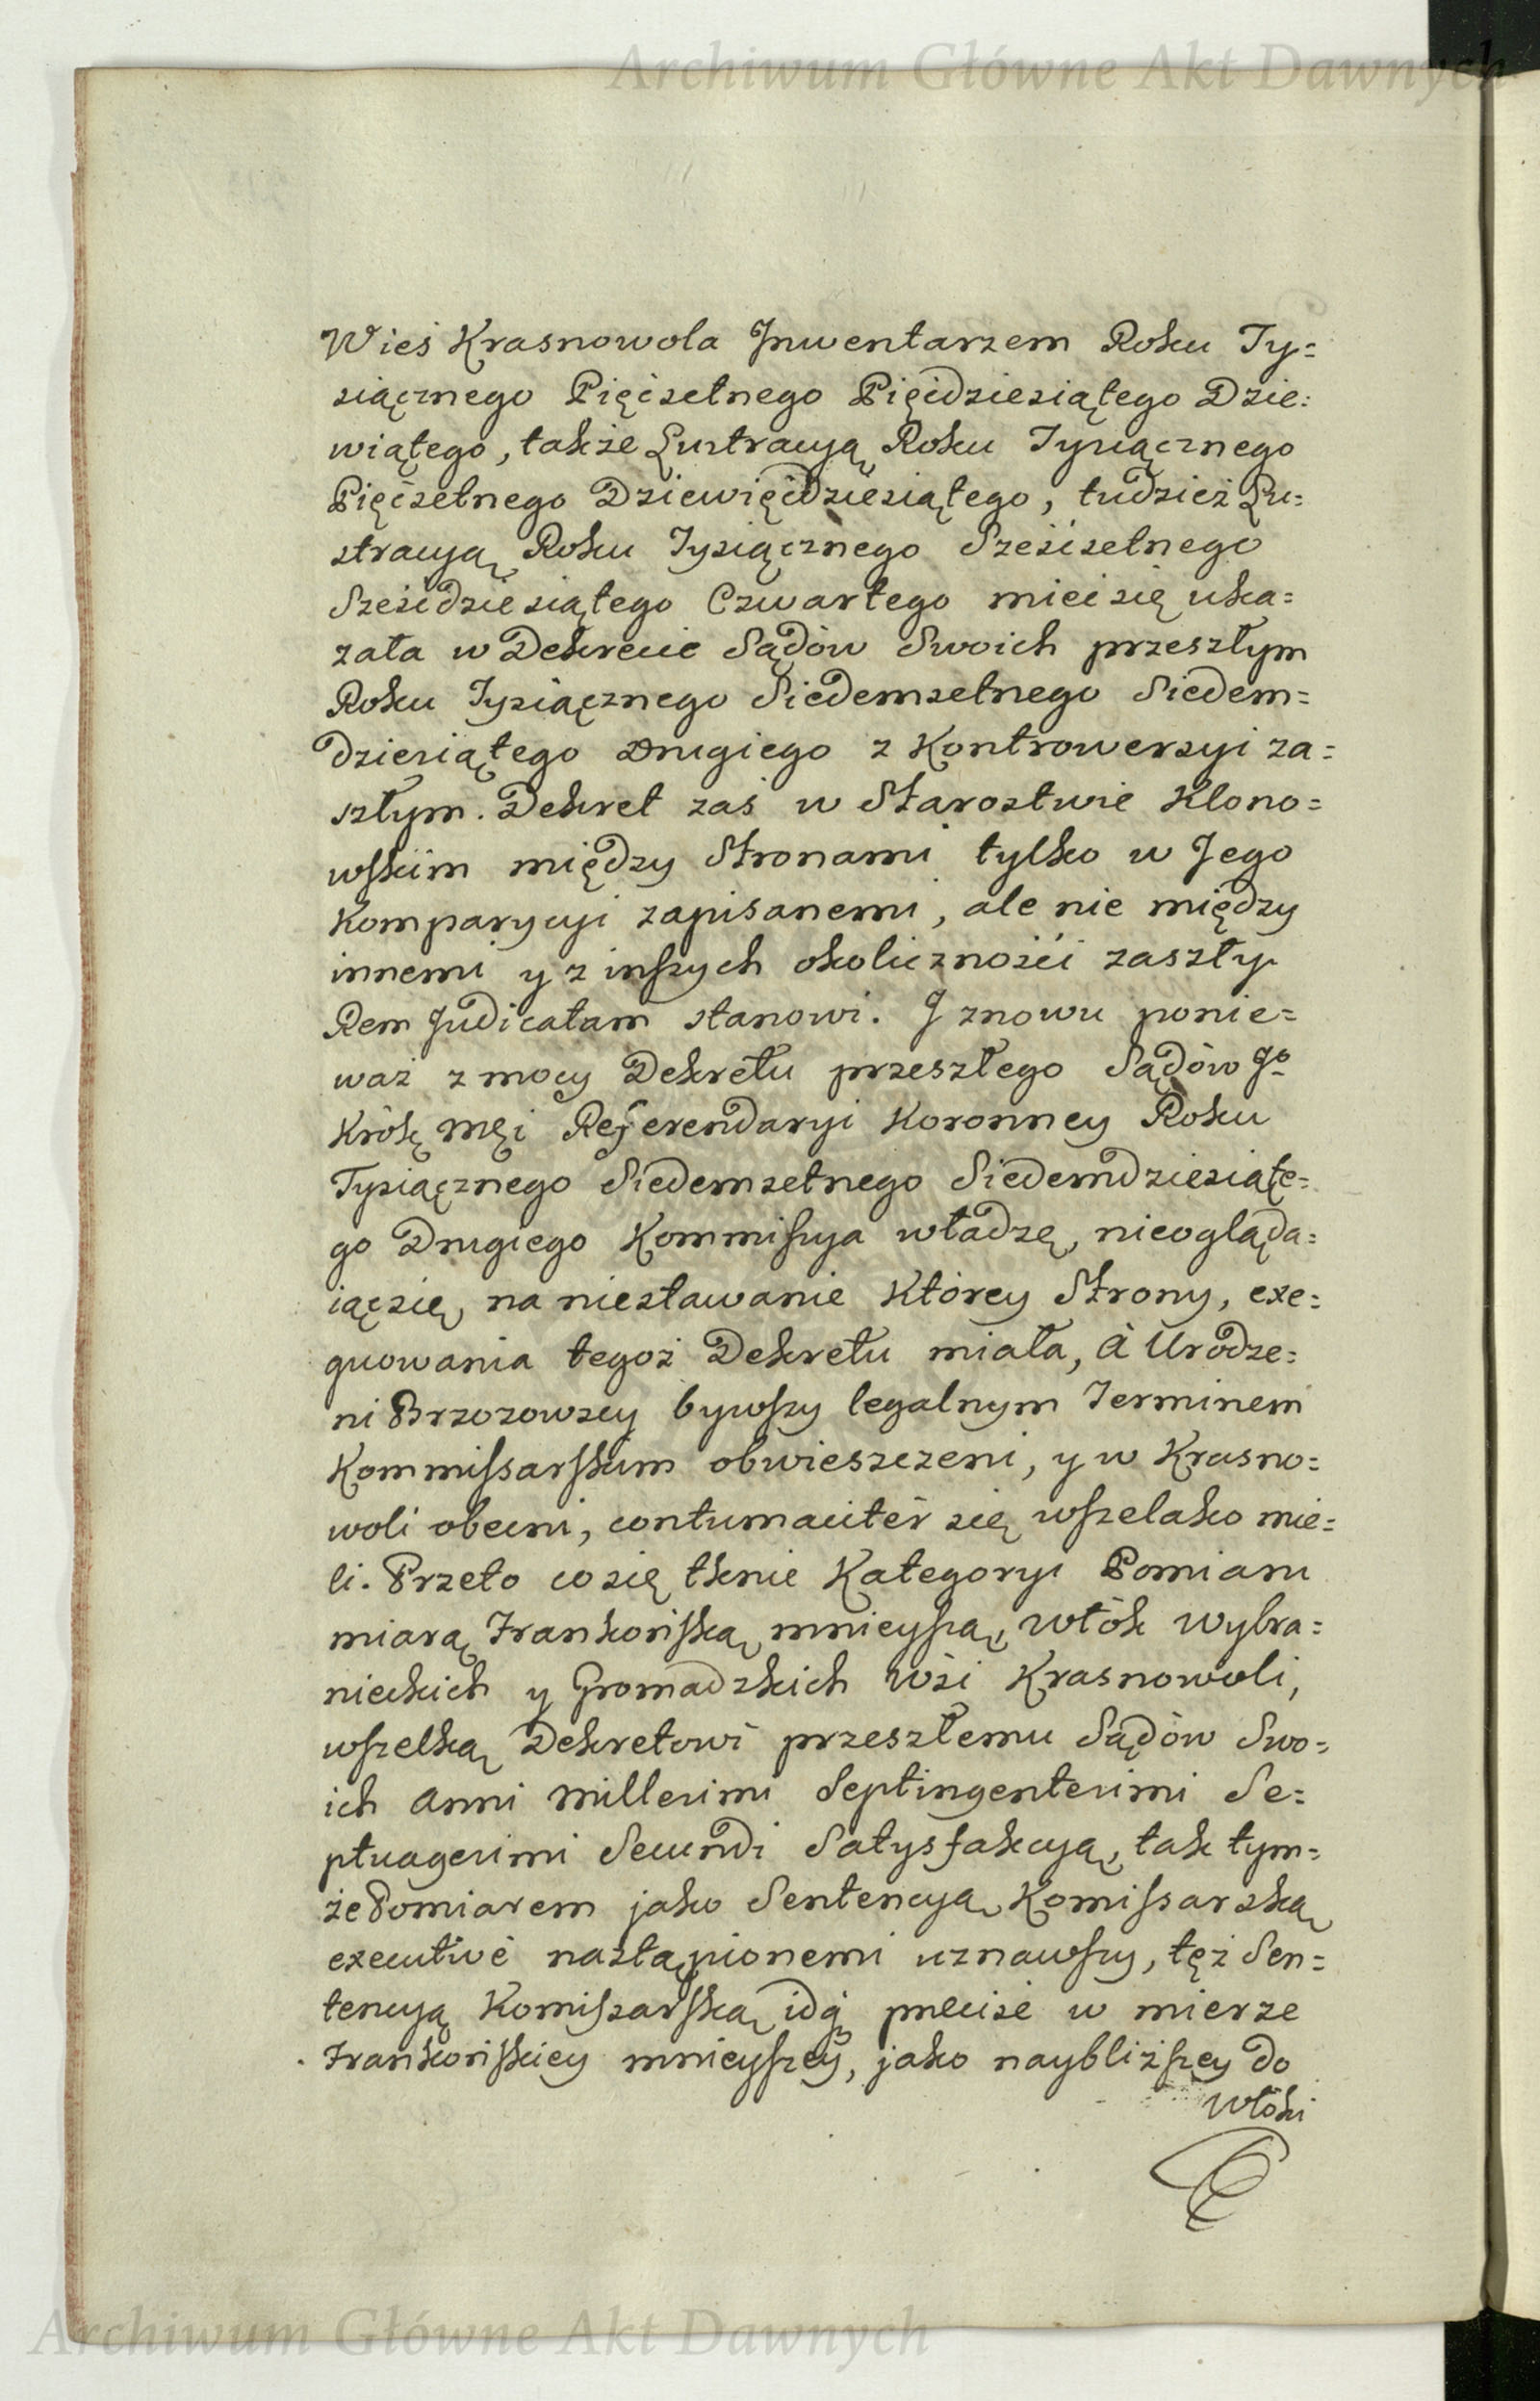 Archiwum Główne Akt Dawnych
Wieś Krasnowola Jnwentarzem Roku Ty=
siącznego Pięćsetnego Pięćdziesiątego Dzie=
wiątego, także Lustracyą Roku Tysiącznego
Pięćsetnego Dziewięćdziesiątego, tudzież Lu=
stracyą Roku Tysiącznego Sześćsetnego
Sześćdziesiątego Czwartego mieć się uka=
zała w Dekrecie Sądów Swoich przeszłym
Roku Tysiącznego Siedemsetnego Siedem=
dziesiątego Drugiego z Kontrowersyi za=
szłym. Dekret zaś w Starostwie Klono=
wskim między Stronami tylko w Jego
Komparycyi zapisanemi, ale nie między
innemi y z inszych okoliczności zaszły
Rem Judicatam stanowi. J znowu ponie=
waż z mocy Dekretu przeszłego Sądów Jº
Królę Męi Referendaryi Koronney Roku
Tysiącznego Siedemsetnego Siedemdziesiąte=
go Drugiego Kommissya władzę, nieogląda=
iąc się, na niestawanie Którey Strony, exe=
quowania tegoż Dekretu miała, à Urodze=
ni Brzozowscy bywszy legalnym Terminem
Kommissarskim obwieszczeni, y w Krasno=
woli obecni, contumaciter się wszelako mie=
li. Przeto co się tknie Kategoryi Pomiaru
miarą Frankońską mnieyszą, włók Wybra=
nieckich y Gromadzkich Wsi Krasnowoli,
wszelką Dekretowi przeszłemu Sądów Swo=
ich Anni Millesimi Septingentesimi Se=
ptuagesimi Secundi Satysfakcyą, tak tym=
że Pomiarem jako Sentencyą Komissarską
executivè nastąpionemi uznawszy, tęż Sen=
tencyą Komissarską idą precise w mierze
Frankońskiey mnieyszey, jako naybliższey do
włóki
Archiwum Główne Akt Dawnych